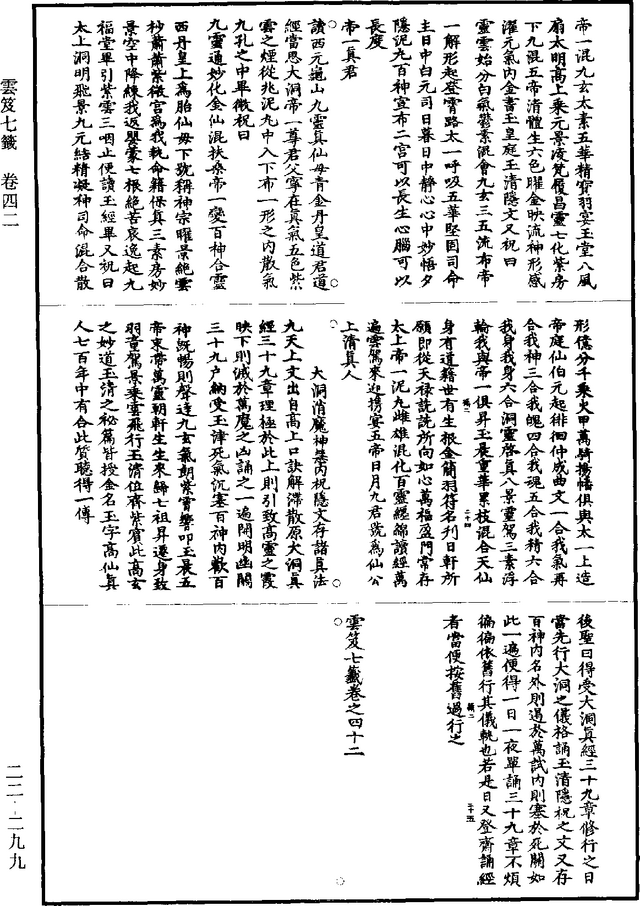 雲笈七籤　卷四二
帝一混九玄太素五華精實羽宴玉堂八風
扇太明高上乘元景淩梵履昌靈七化紫房
下九混五帝清體生六色曜金映流神形感
濯元氣内金書玉皇庭玉清隱文又祝曰
靈雲始分白氣鬱素混會九玄三五流布帝
一解形起登霄路太一呼吸五華堅固司命
主日中白元司日暮日中靜心心中妙悟夕
隱泥九百神宣布二宫可以長生心腦可以
長度
帝一真君
讀西元 山九靈真仙母青金丹皇道君道
經當思大洞帝一尊君父寧在真氣五色紫
雲之煙從兆泥九中入下布一形之内散氣
九孔之中畢微祝曰
九靈通妙化金仙混扶桑帝一變百神合靈
西丹皇上為胎仙母下號稱神宗曜景絶雲
杪蕭蕭紫微宫爲我執命籍保真三素房妙
景空中降練我返嬰蒙七根絶苦哀逸起九
福堂畢引紫雲三咽止便讀玉經畢又祝曰
太上洞明飛景九元結精凝神司命混合散
形億分千乘火甲萬騎揚幡俱與太一上造
帝庭仙伯元起徘徊仲成曲文一合我氣再
合我神三合我魄四合我魂五合我精六合
我身我身六合洞靈啓真八景靈駕三素浮
輪我與帝一俱昇玉晨重華累枝混合天仙
身有道籍世有生根金簡羽符名刊日軒所
願即從天禄詵詵所向如心萬福盈門常存
太上帝一泥九雌雄混化百靈經錦讀經萬
遍雲駕來迎携宴五帝日月九君號爲仙公
上清真人
大洞消魔神慧内祝隱文存諸真法
九天上文出自高上口訣解滯散原大洞真
經三十九章理極於此上則引致高靈之霞
映下則滅於萬魔之凶誦之一遍開明幽關
三十九户納受玉津死氣沉塞百神内歡百
神既暢則聲達九玄氣朗紫霄響叩玉晨五
帝束帶萬靈朝軒生生來歸七祖昇遷身致
羽童駕景乘雲飛行玉清位齊紫賓此高玄
之妙道玉清之秘篇皆授金名玉字高仙真
人七百年中有合此質聽得一傳
後聖曰得受大洞真經三十九章修行之日
當先行大洞之儀格誦玉清隱祝之文又存
百神内名外則遏於萬試内則塞於死關如
此一遍便得一日一夜單誦三十九章不煩
徧徧依舊行其儀軌也若是日又登齋誦經
者當便按舊過行之
雲笈七籤卷之四十二
二二·二九九